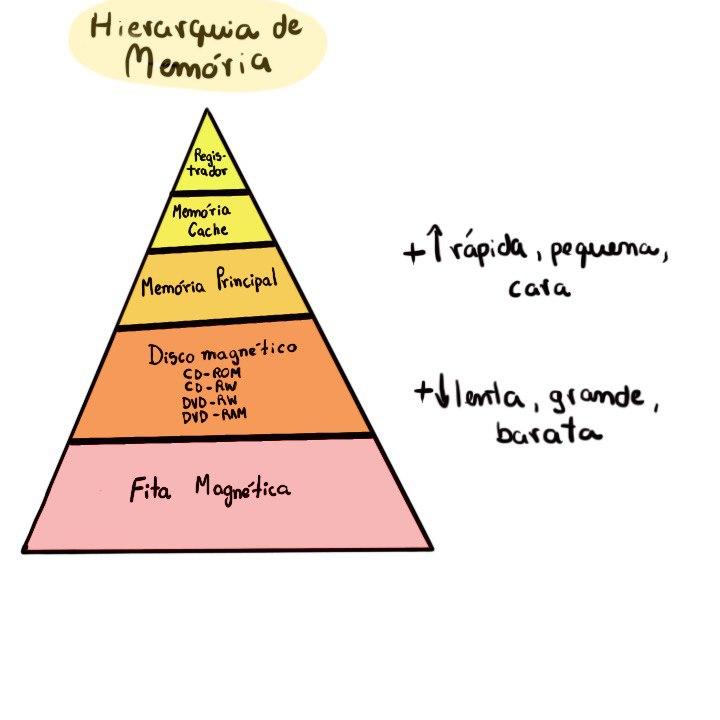 Hierarquia de
Memória
Regis-
trador
Memória
Cache
Memória Principal
Disco magnético
CD-ROM
CD-RW
DVD-RW
DVD-RAM
Fita Magnética
+↑ rápida, pequena,
cara
+↓ lenta, grande,
barata